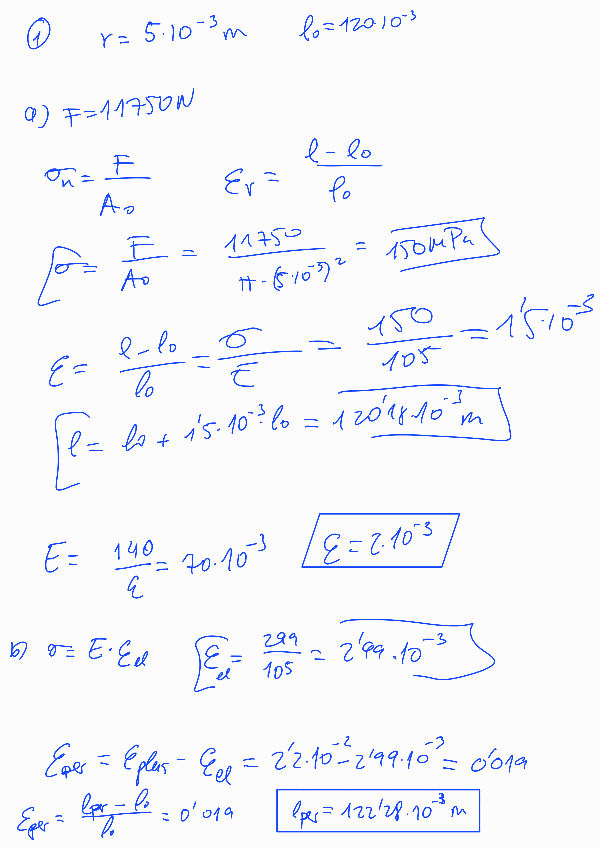 ① r = 5·10⁻³ m l₀ = 120·10⁻³
a) F = 11750N
σₙ = F/A₀ εᵣ = (l - l₀)/l₀
σ = F/A₀ = 11750/(π·(5·10⁻³)²) = 150 MPa
ε = (l - l₀)/l₀ = σ/E = 150/105 = 1'5·10⁻³
l = l₀ + 1'5·10⁻³·l₀ = 120'18·10⁻³ m
E = 140/ε = 70·10⁻³ ε = 2·10⁻³
b) σ = E·εel εel = 299/105 = 2'99·10⁻³
εper = εplas - εel = 2'2·10⁻² - 2'99·10⁻³ = 0'019
εper = (lper - l₀)/l₀ = 0'019 lper = 122'28·10⁻³ m